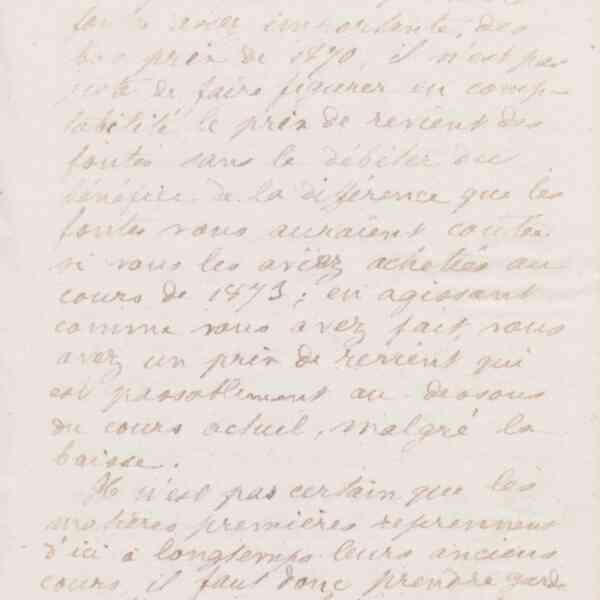 fontes assez importante, des
bas prix de 1870, il n'est pas
juste de faire figurer en comp-
tabilité le prix de revient des
fontes sans le débiter du
bénéfice de la différence que les
fontes vous auraient coutées
si vous les aviez achetées au
cours de 1873; en agissant
comme vous avez fait, vous
avez un prix de revient qui
est passablement au dessous
du cours actuel, malgré la
baisse.
Il n'est pas certain que les
matières premières reprennent
d'ici à longtemps leurs anciens
cours, il faut donc prendre garde